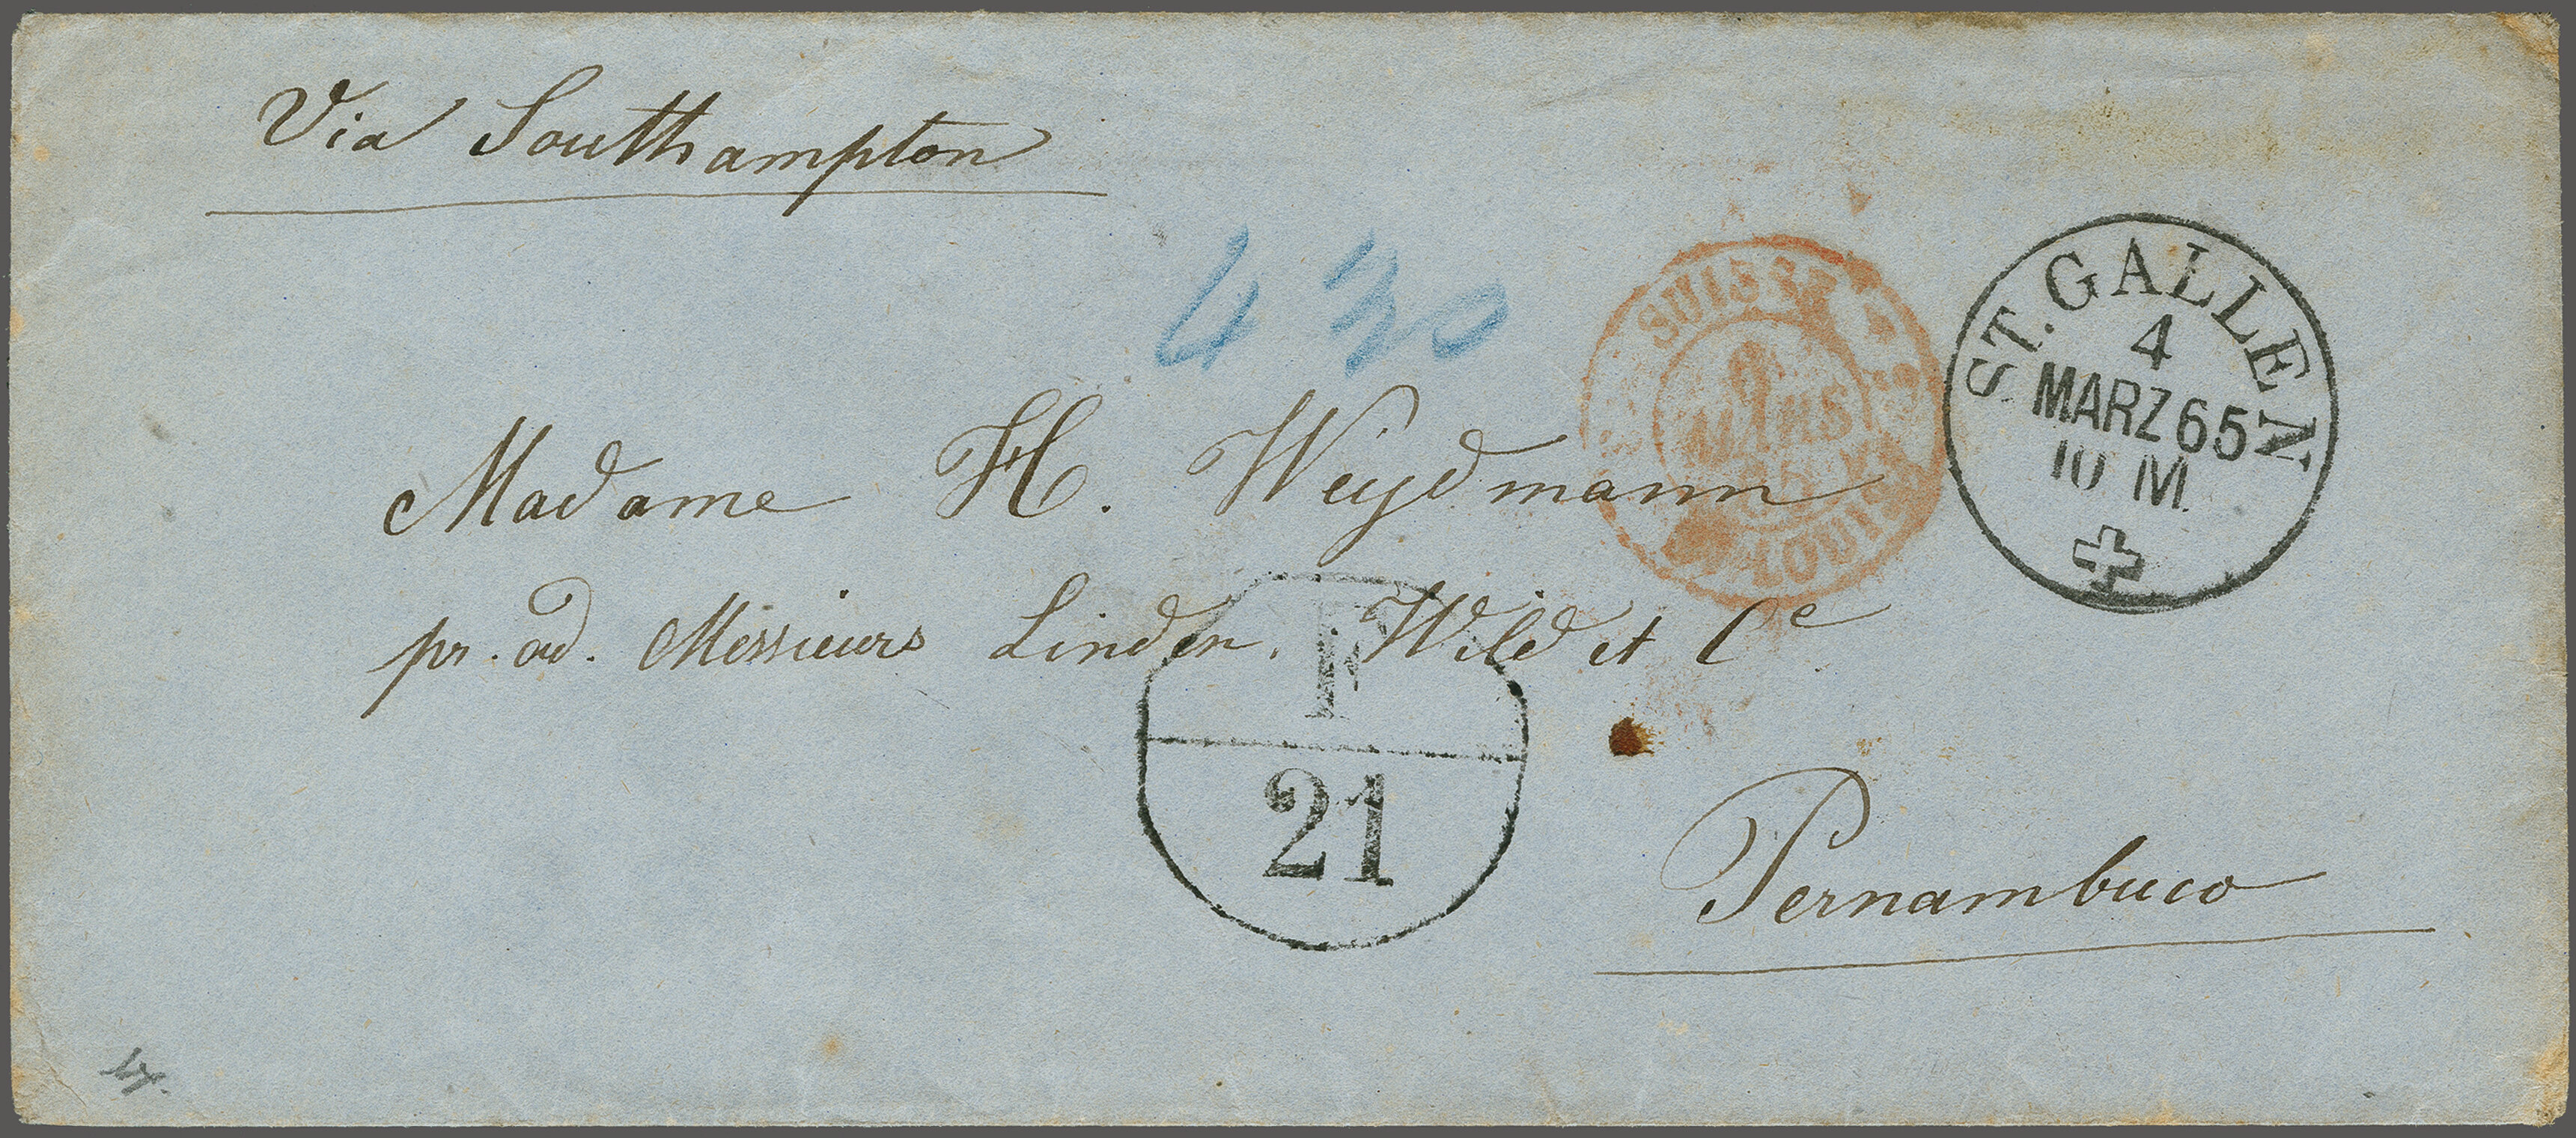 Via Southampton
4 30
SUISSE
MARS
ST. GALLEN
4
MARZ 65
10 M.
Madame H. Weydmann
pr. ad. Messieurs Linden, Wild et Ce
F
21
Pernambuco